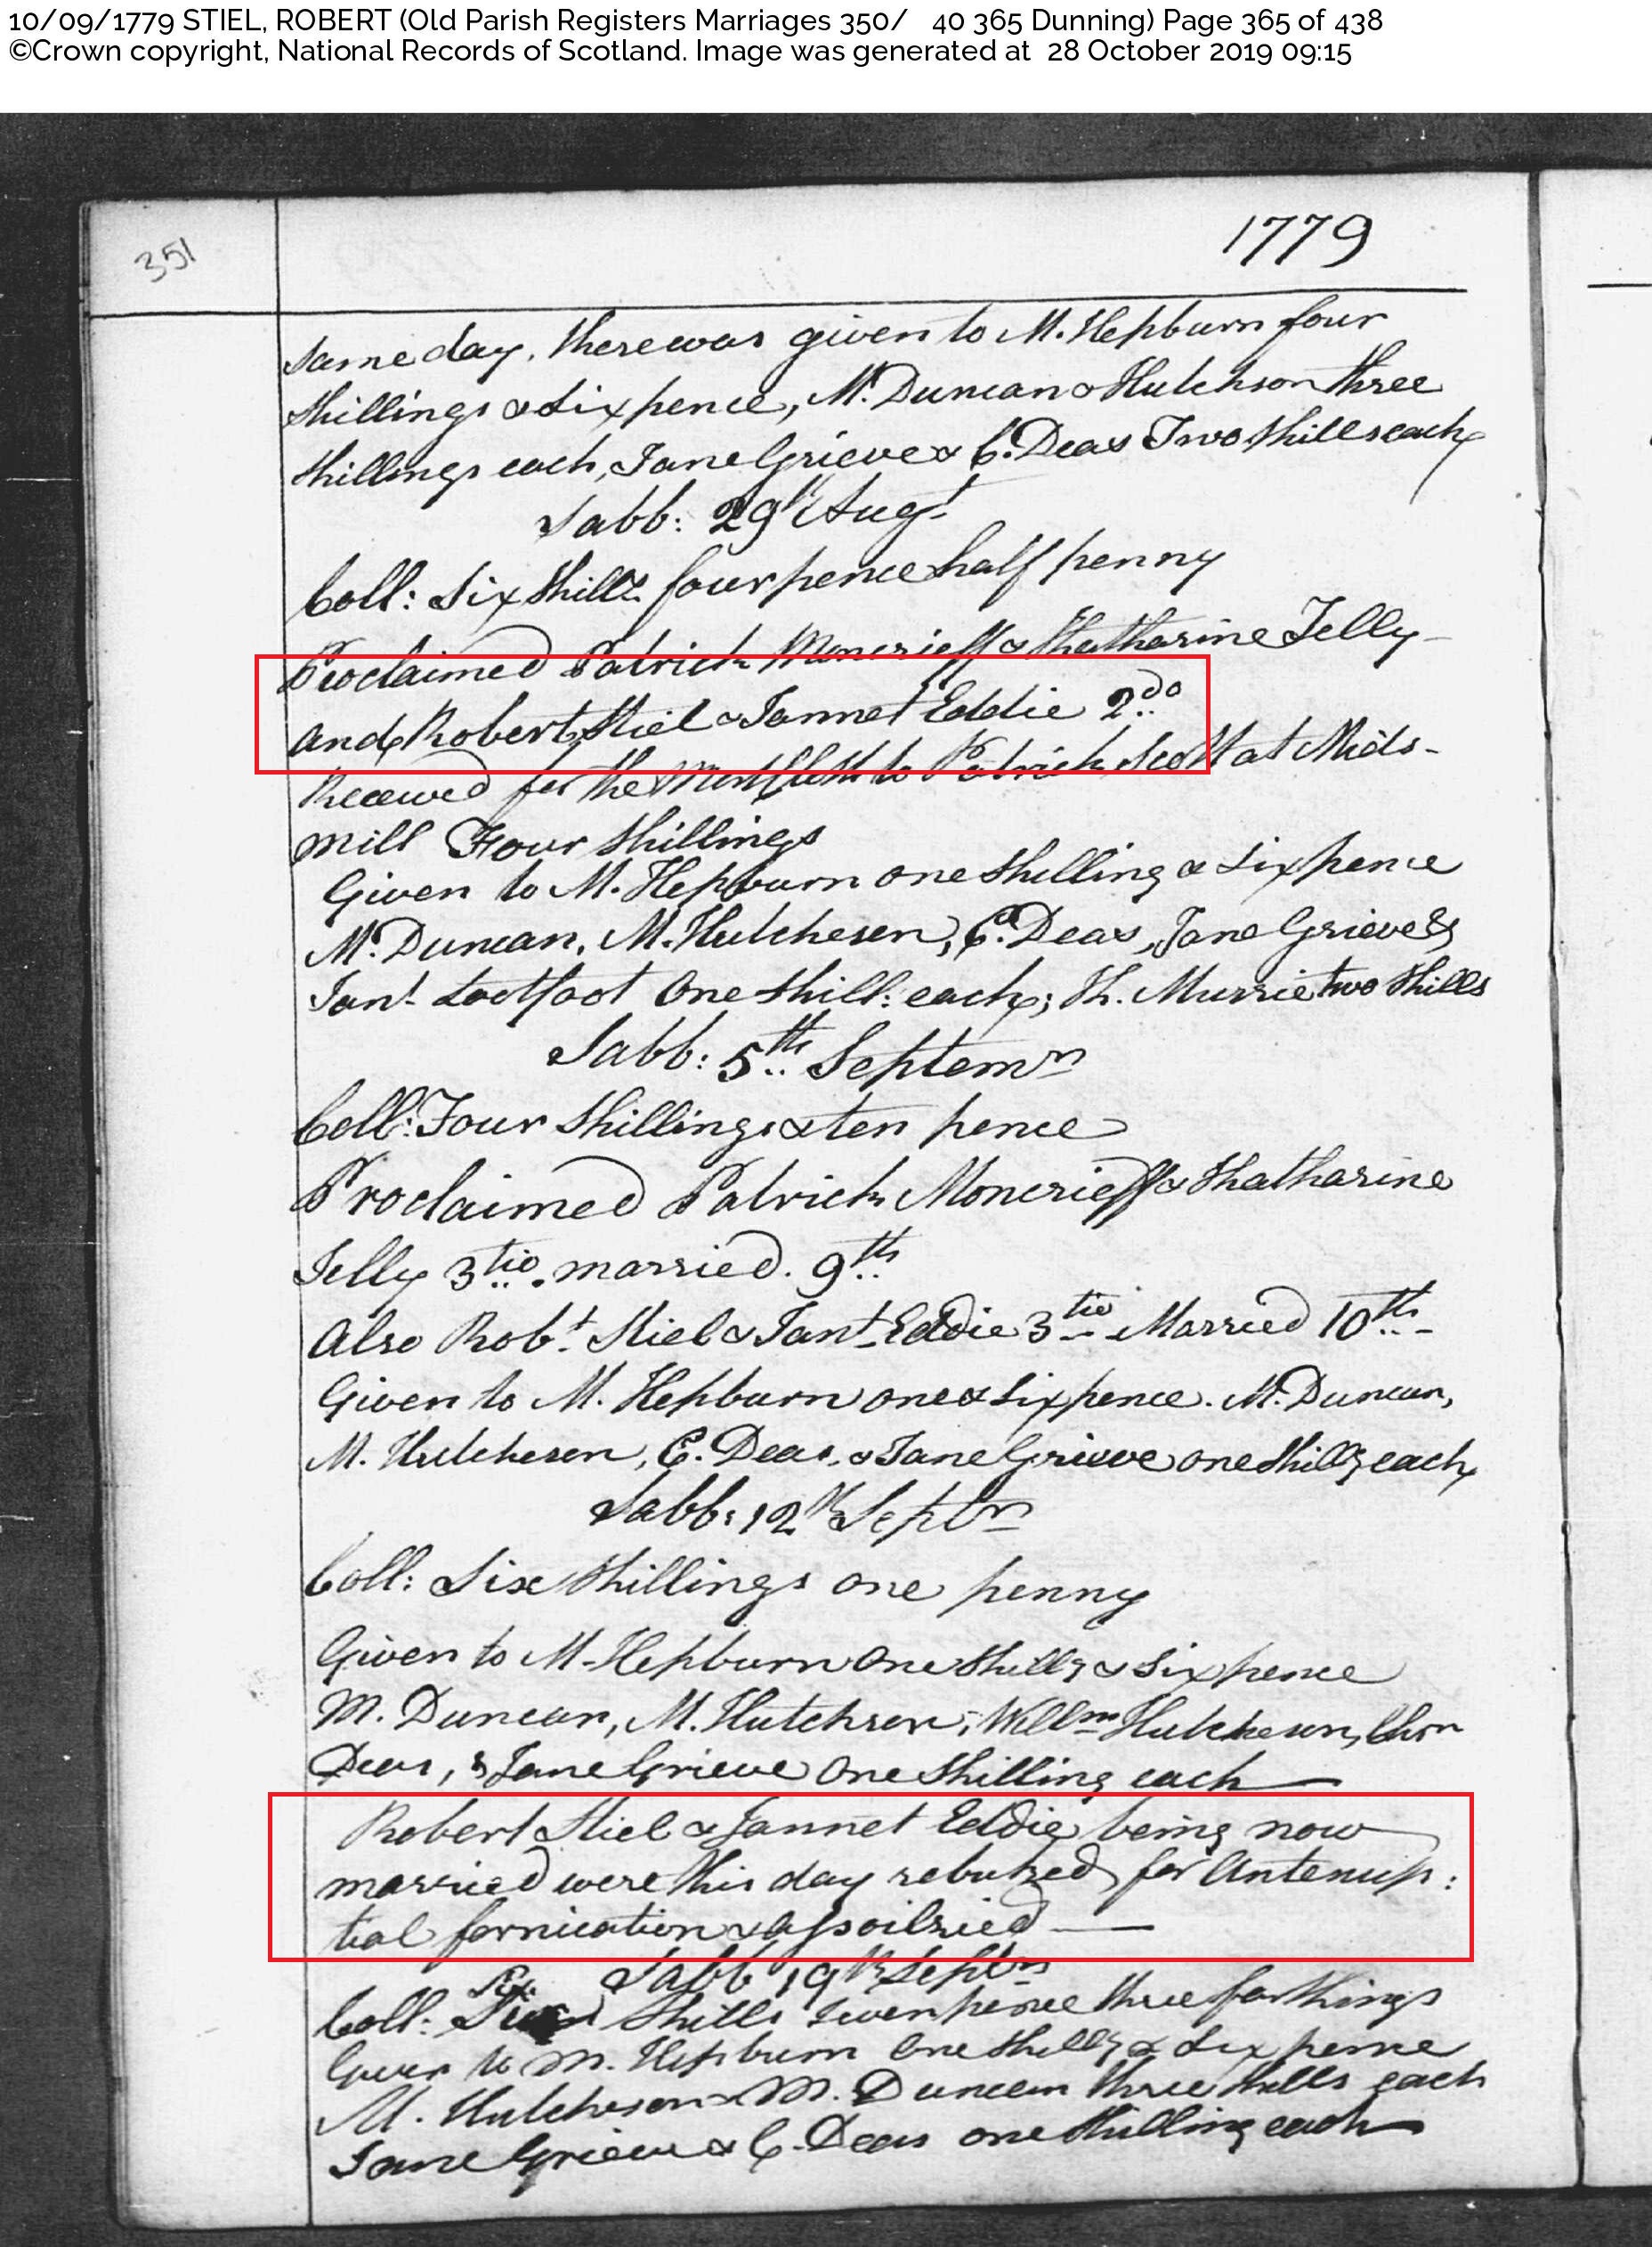 10/09/1779 STIEL, ROBERT (Old Parish Registers Marriages 350/ 40 365 Dunning) Page 365 of 438
©Crown copyright, National Records of Scotland. Image was generated at 28 October 2019 09:15
351
1779
same day, there was given to M. Hepburn four
shillings & sixpence, M. Duncan & Hutchson three
shillings each, Jane Grieve & C. Deas Two shills each
Sabb: 29th Augt
Coll: Six shills fourpence half penny
Proclaimed Patrick Moncrieff & Khatharine Jelly
and Robert Stiel & Jannet Eddie 2do
Received for the Mortcloth to Patrick Scott at Mids-
mill Four shillings
Given to M. Hepburn one shilling & sixpence
M. Duncan, M. Hutcheson, C. Deas, Jane Grieve &
Jant Lootfoot One shill: each; Th. Murrie two shills
Sabb: 5th Septemr
Coll: Four shillings & ten pence
Proclaimed Patrick Moncrieff & Khatharine
Jelly 3tio. married. 9th
Also Robt. Stiel & Jant Eddie 3tio Married 10th
Given to M. Hepburn one & sixpence. M. Duncan,
M. Hutcheson, C. Deas, & Jane Grieve one shillg each
Sabb: 12th Septbr
Coll: Six shillings one penny
Given to M. Hepburn One shillg & sixpence
M. Duncan, M. Hutcheson, Willm Hutcheson, Chrn
Deas, & Jane Grieve One shilling each
Robert Stiel & Jannet Eddie being now
married were this day rebuked for Antenup:
tial fornication & assoilzied
Sabb 19th Septbr
Six
Coll: shills sevenpence three farthings
Given to M. Hepburn One shillg & sixpence
M. Hutcheson & M. Duncan three shills each
Jane Grieve & C. Deas one shilling each